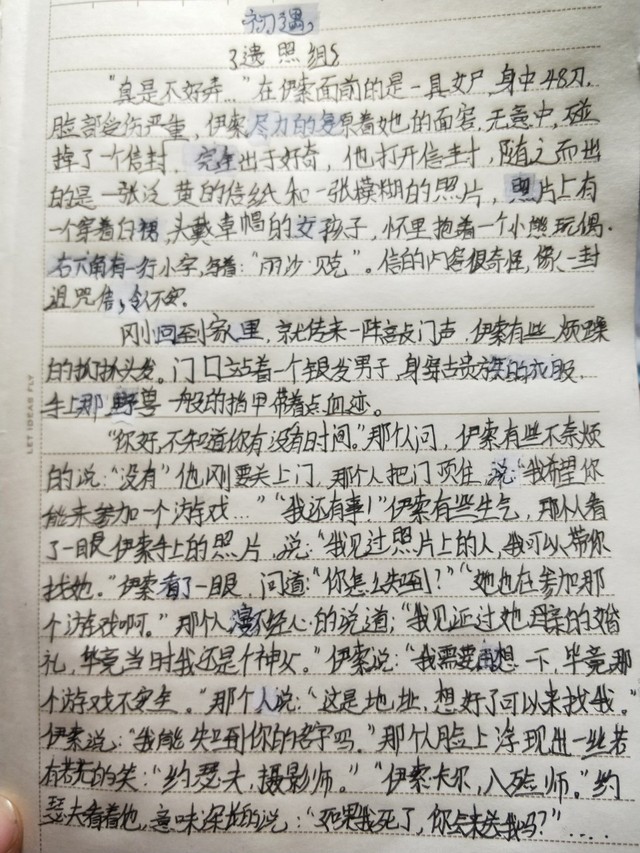 初遇,
遗照组
"真是不好弄…"在伊索面前的是一具女尸,身中48刀,
脸部受伤严重,伊索尽力的复原着她的面容,无意中,碰
掉了一个信封,完全出于好奇,他打开信封,随之而出
的是一张泛黄的信纸和一张模糊的照片,照片上有
一个穿着白裙,头戴草帽的女孩子,怀里抱着一个小熊玩偶.
右下角有一行小字,写着:"丽沙·贝克"。信的内容很奇怪,像一封
诅咒信,令人不安.
刚回到家里,就传来一阵敲门声,伊索有些烦躁
的抓抓头发。门口站着一个银发男子,身穿古贵族的衣服,
手上那野兽一般的指甲带着点血迹。
"你好,不知道你有没有时间。"那个人问,伊索有些不奈烦
的说:"没有"他刚要关上门,那个人把门顶住,说:"我希望你
能来参加一个游戏…""我还有事!"伊索有些生气,那个人看
了一眼伊索手上的照片,说:"我见过照片上的人,我可以带你
找她。"伊索看了一眼,问道:"你怎么知到?""她也在参加那
个游戏啊。"那个人漫不经心的说道:"我见证过她母亲的婚
礼,毕竟当时我还是个神父。"伊索说:"我需要再想一下,毕竟那
个游戏不安全。"那个人说:"这是地址,想好了可以来找我。"
伊索说:"我能知到你的名字吗。"那个人脸上浮现出一丝若
有若无的笑:"约瑟夫,摄影师。""伊索卡尔,入殓师。"约
瑟夫看着他,意味深长的说:"如果我死了,你会来送我吗?"….
LET IDEAS FLY